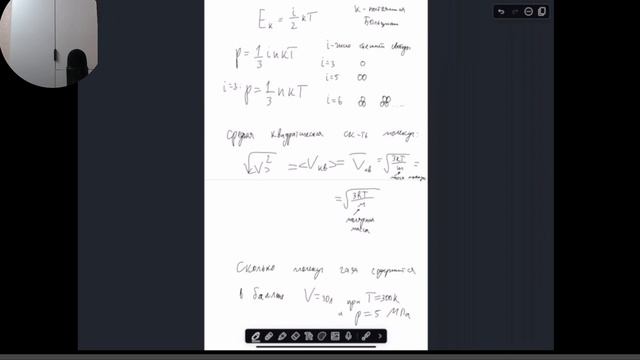 E_к = i/2 kT
k - постоянная Больцмана
p = 1/3 i n k T
i - число степеней свободы
i=3
i=5
i=3: p = 1/3 n k T
i=6 ....
Средняя квадратическая ск-ть молекул:
√<V>² = <V_кв> = V̅_кв = √3kT/m =
масса молекулы
= √3RT/M
молярная масса
Сколько молекул газа содержится
в баллоне V=30л при T=300K
и p=5 МПа